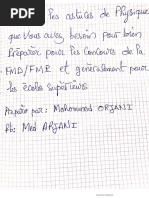 les astuces de Physique
que Vous avez besoin pour bien
Préparer pour les Concours de la
FMD/FME et généralement pour
les écoles supérieurs
Préparé par: Mohammed ORJANI
fb: Med ARJANI